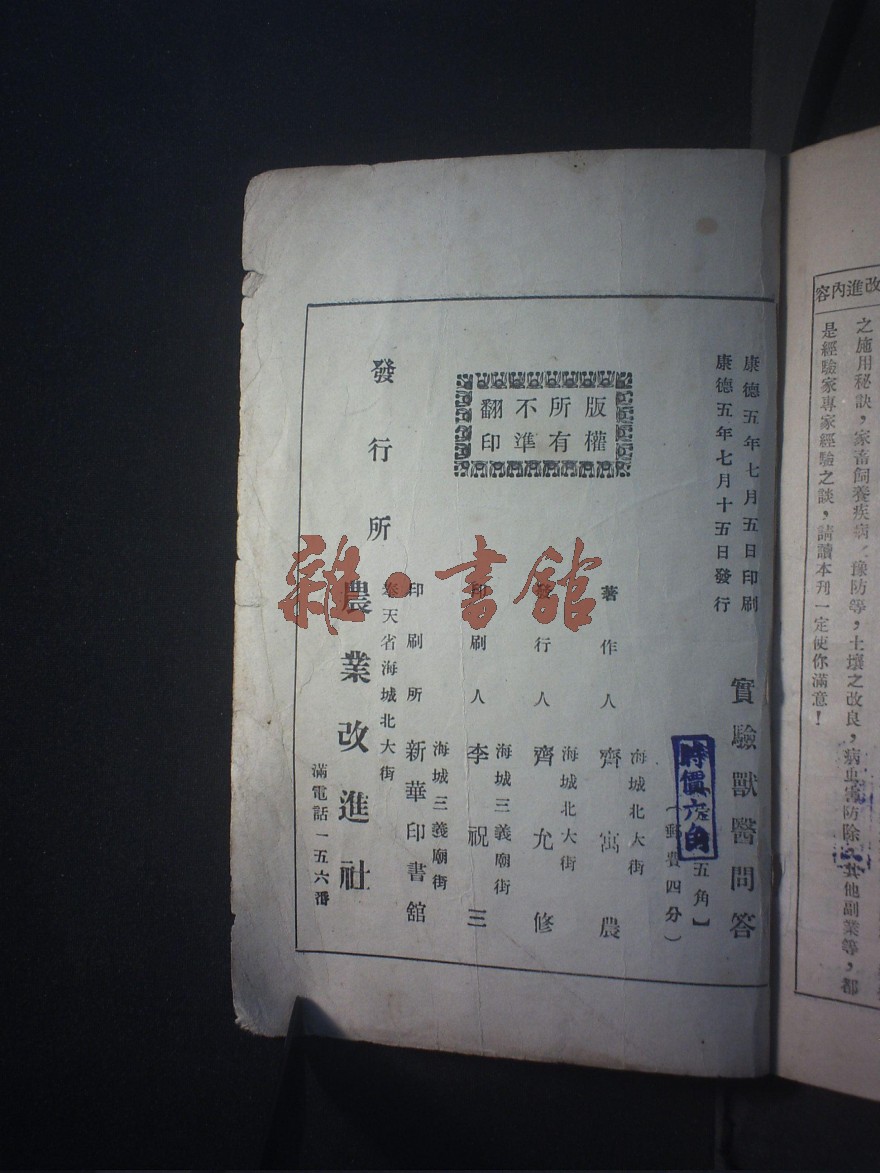 改進內容
之施用秘訣，家畜飼養疾病，豫防等，土壤之改良，病虫害防除，其他副業等，都
是經驗家專家經驗之談，請讀本刊一定使你滿意！
康德五年七月五日印刷
康德五年七月十五日發行
實驗獸醫問答
五角】
（郵費四分）
時價六角
版權
所有
不準
翻印
海城北大街
著作人 齊寓農
海城北大街
發行人 齊允修
海城三義廟街
印刷人 李祝三
海城三義廟街
印刷所 新華印書館
奉天省海城北大街
發行所 農業改進社
滿電話一五六番
雜·書館